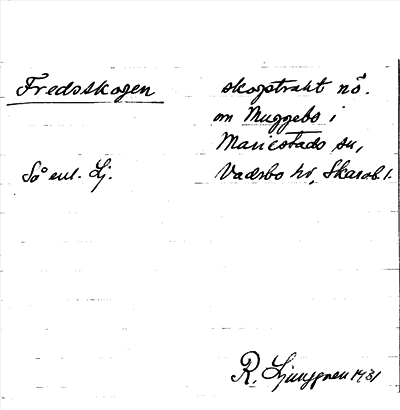 Fredsskogen
skogstrakt nö.
om Muggebo i
Mariestads sn,
Vadsbo hd, Skarab. l.
Så enl. Lj.
R. Ljunggren 1931